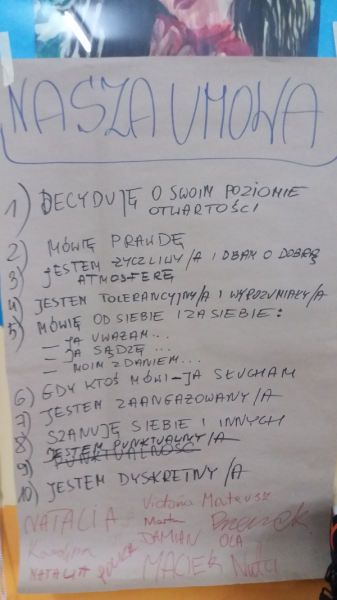 NASZA UMOWA
1) DECYDUJĘ O SWOIM POZIOMIE
OTWARTOŚCI
2) MÓWIĘ PRAWDĘ
3) JESTEM ŻYCZLIWY/A I DBAM O DOBRĄ
ATMOSFERĘ
4) JESTEM TOLERANCYJNY/A I WYROZUMIAŁY/A
5) MÓWIĘ OD SIEBIE I ZA SIEBIE:
– JA UWAŻAM...
– JA SĄDZĘ...
– MOIM ZDANIEM...
6) GDY KTOŚ MÓWI – JA SŁUCHAM
7) JESTEM ZAANGAŻOWANY/A
8) SZANUJĘ SIEBIE I INNYCH
9) JESTEM PUNKTUALNY/A
PUNKTUALNOŚĆ
10) JESTEM DYSKRETNY/A
NATALIA Victoria Mateusz
Marta
Karolina DAMIAN OLA
NATALIA MACIEK